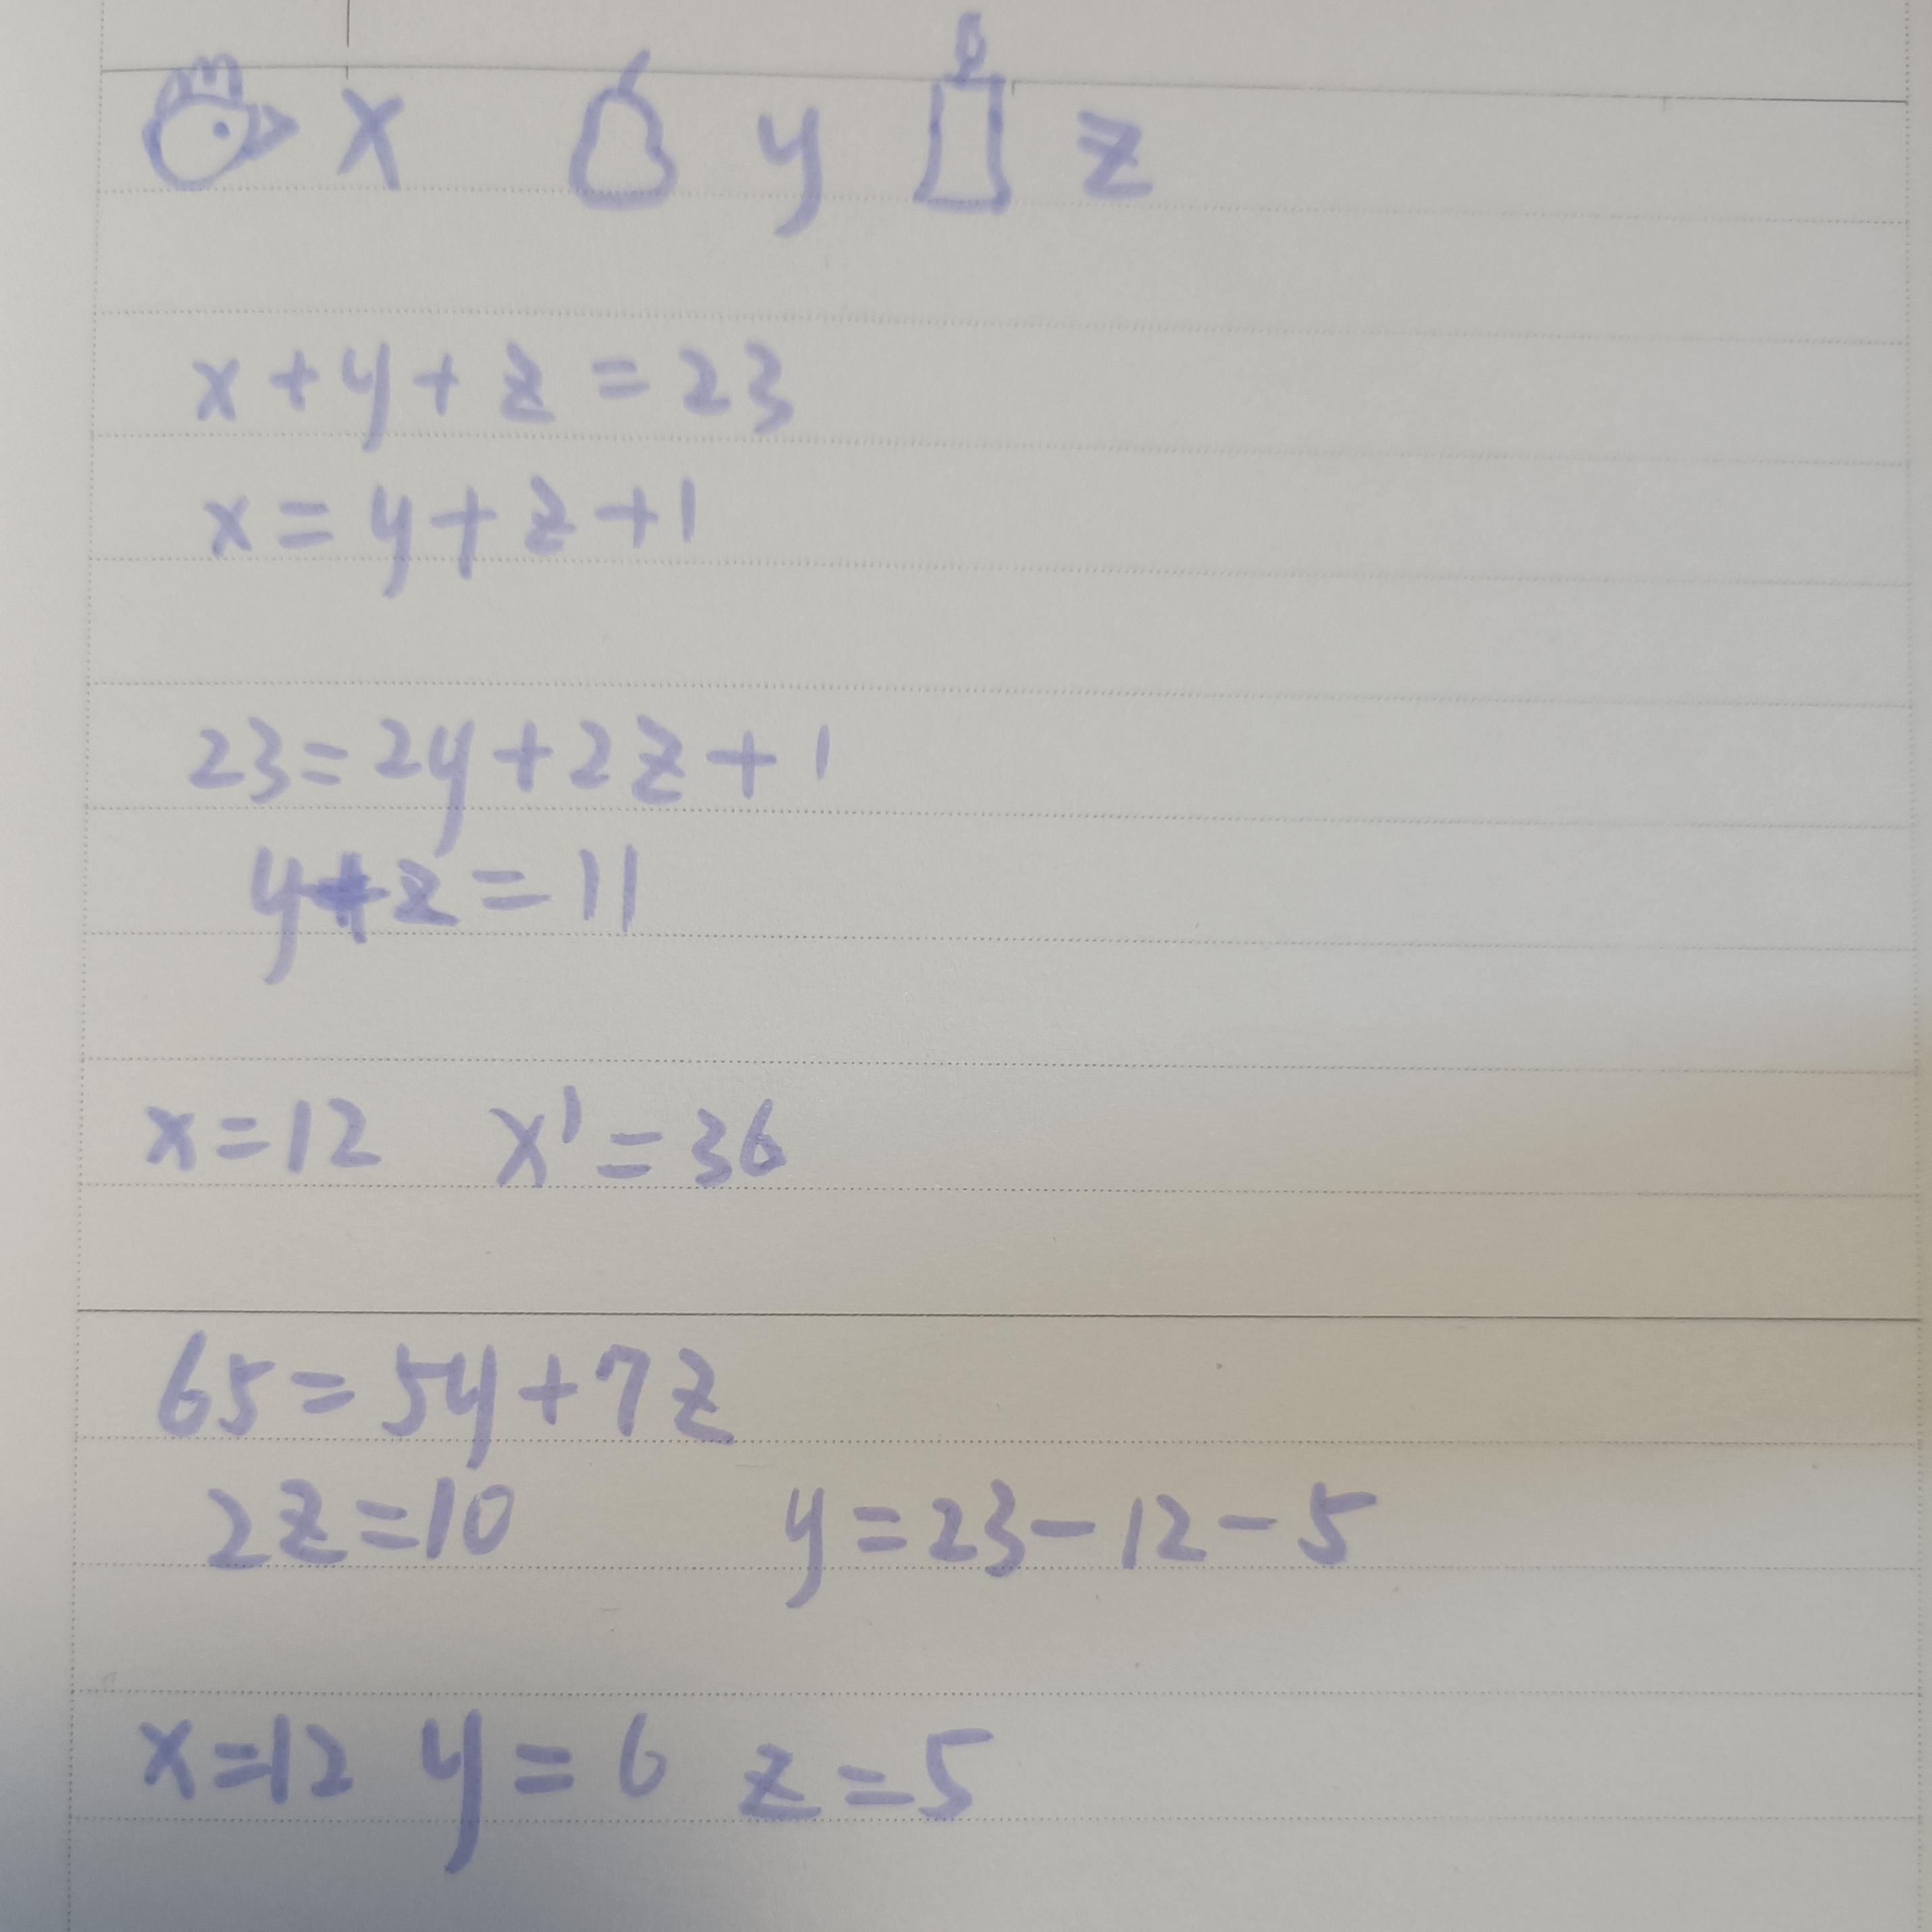 x y z
x + y + z = 23
x = y + z + 1
23 = 2y + 2z + 1
y + z = 11
x = 12 x' = 36
65 = 5y + 7z
2z = 10 y = 23 - 12 - 5
x = 12 y = 6 z = 5